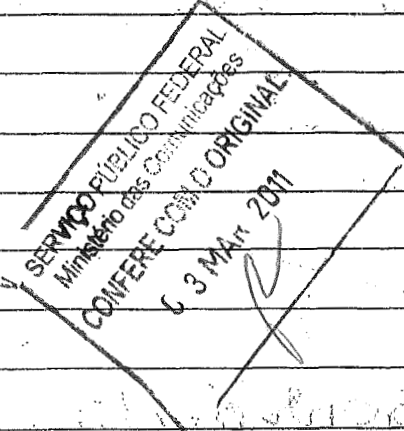 SERVIÇO PÚBLICO FEDERAL
Ministério das Comunicações
CONFERE COM O ORIGINAL
3 MAR 2011